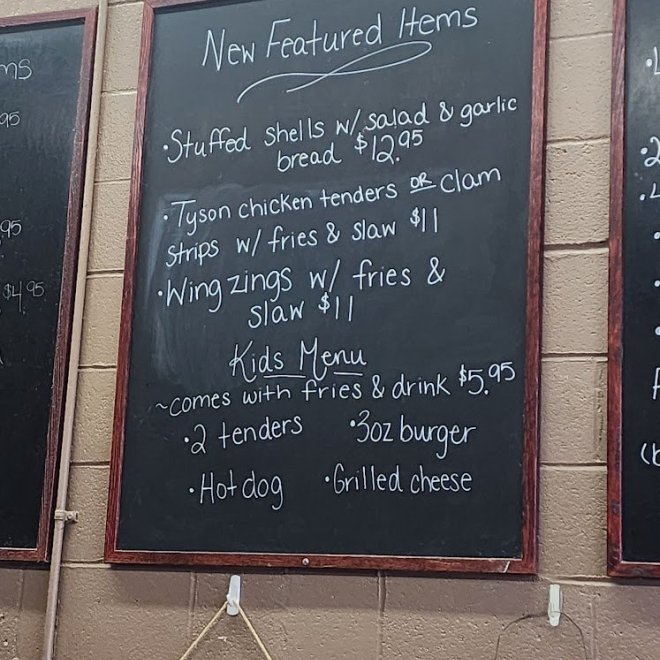 New Featured Items
•Stuffed Shells w/ salad & garlic
bread $12.95
•Tyson chicken tenders OR clam
strips w/ fries & slaw $11
•Wing zings w/ fries &
slaw $11
Kids Menu
~comes with fries & drink $5.95
•2 tenders •3oz burger
•Hot dog •Grilled cheese
95
95
$4.95